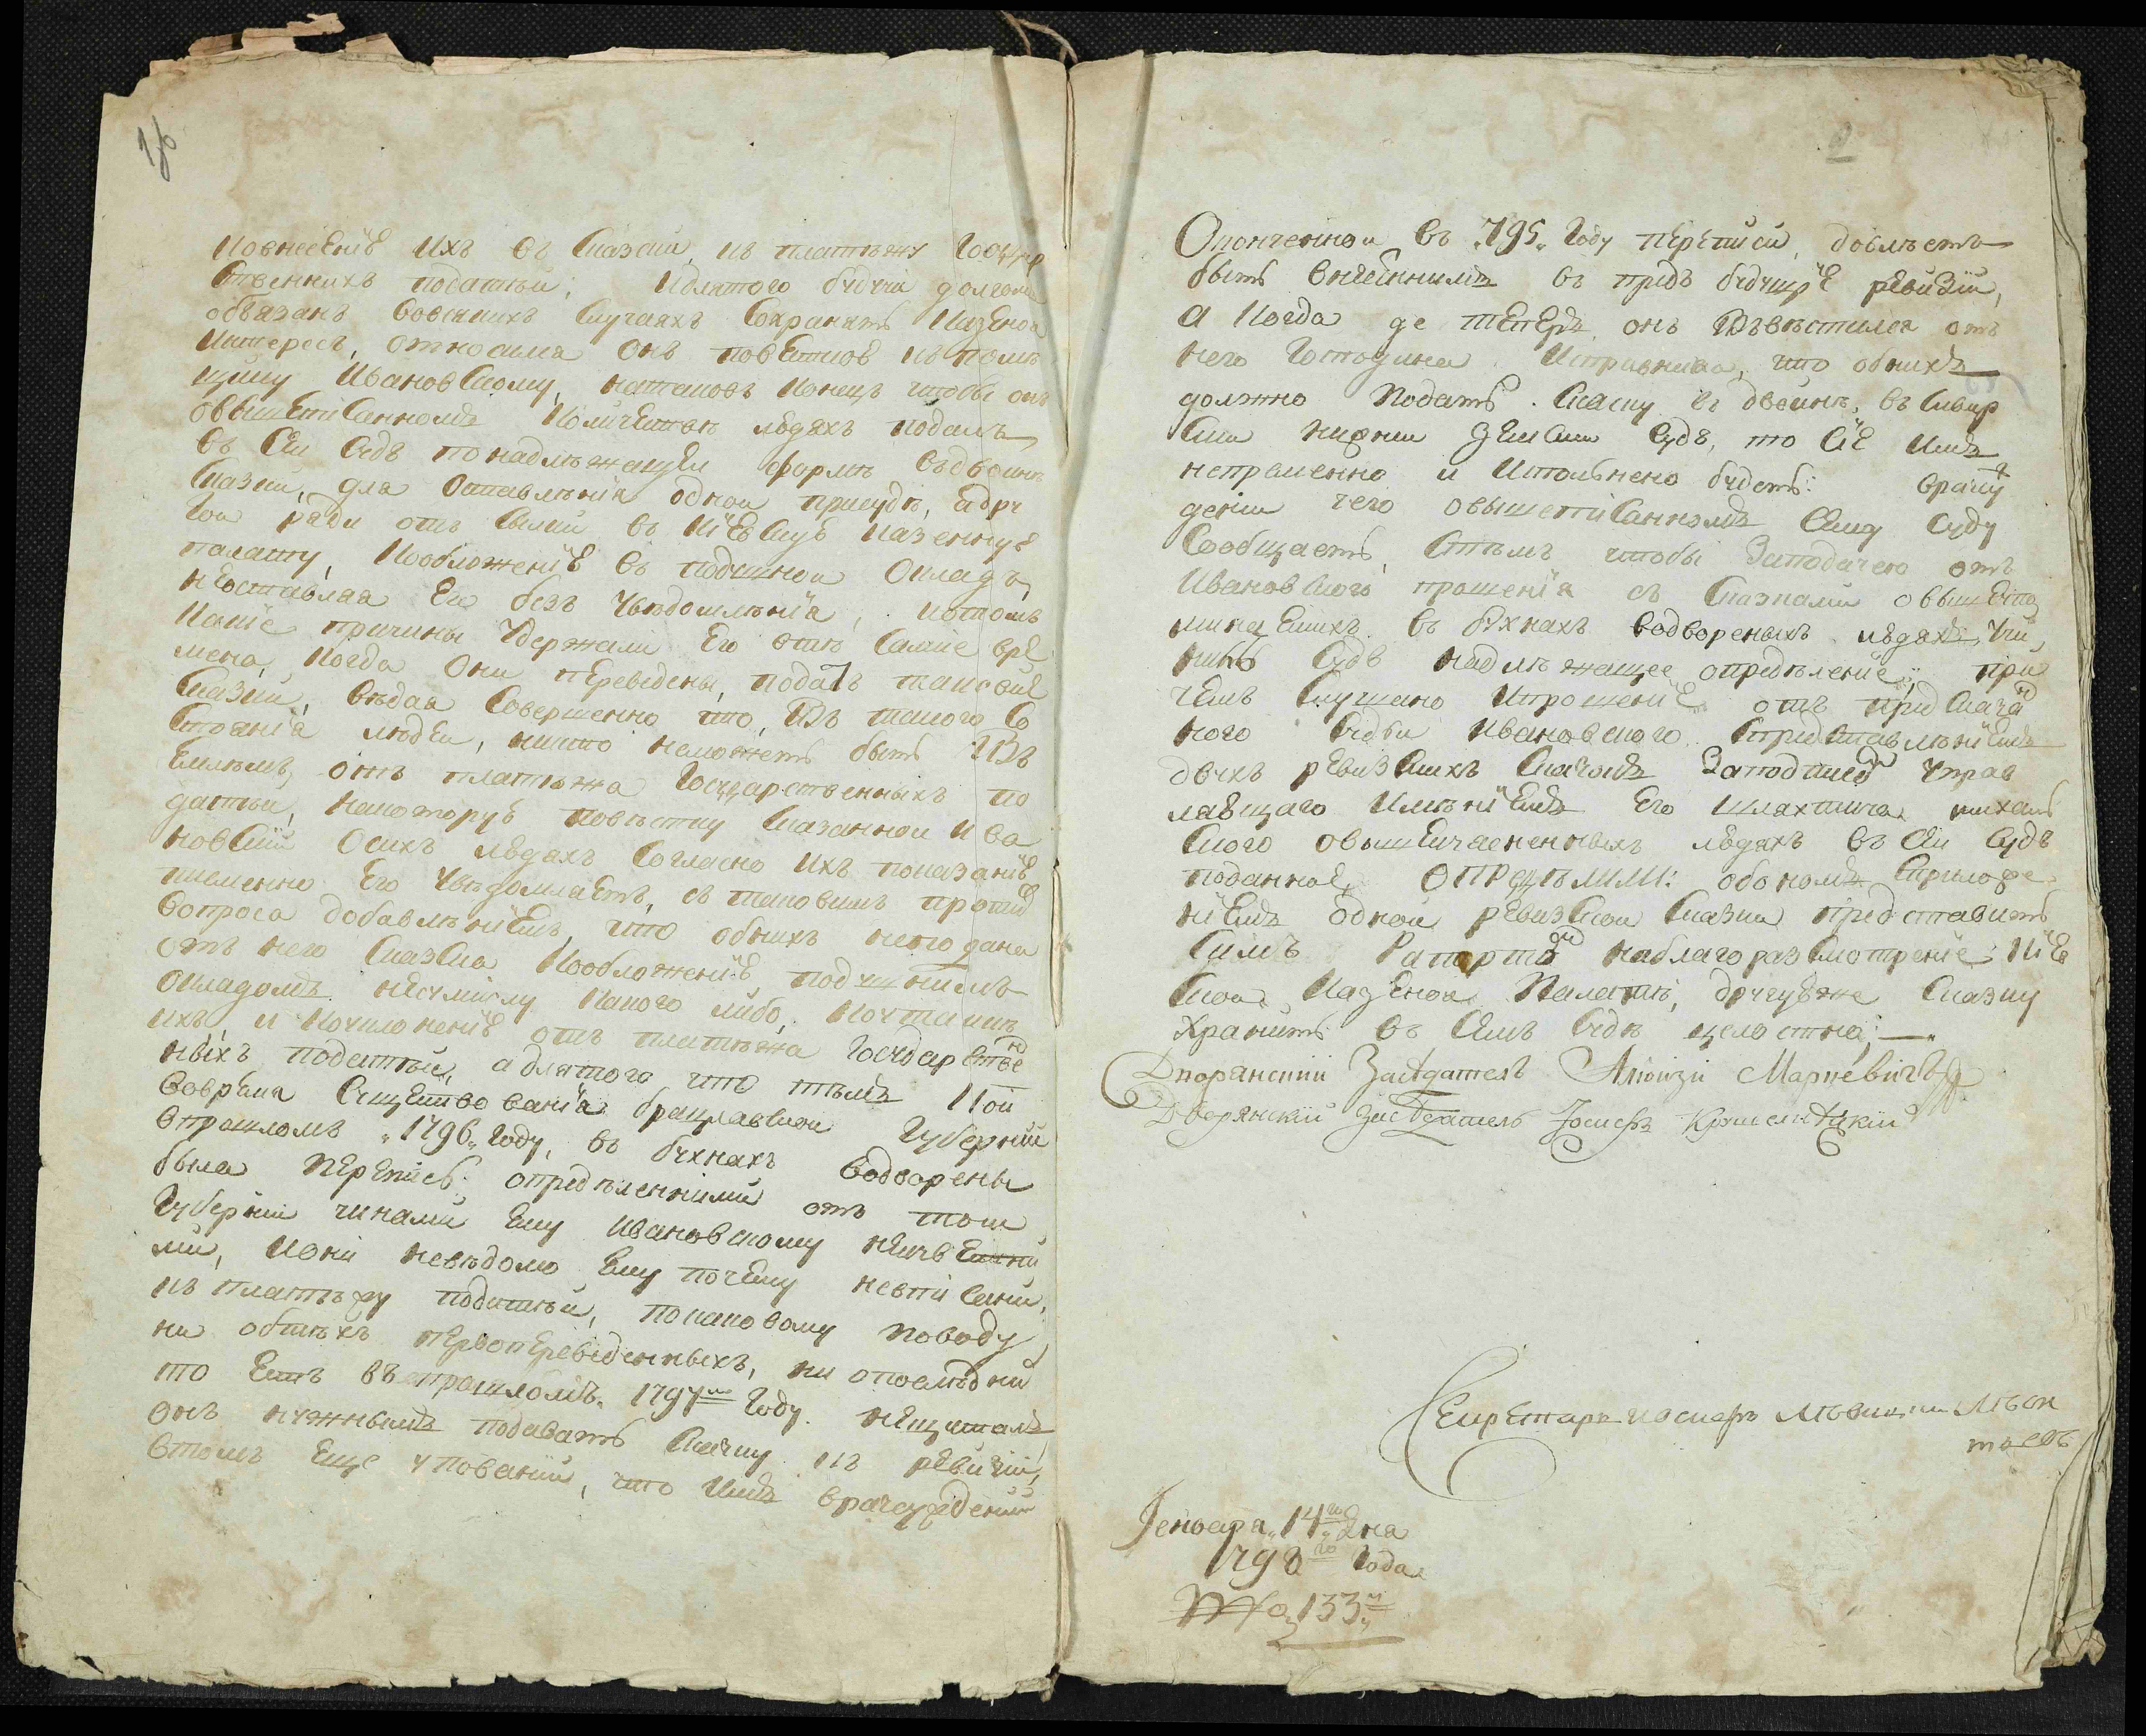 36
Ковнесенїе ихъ въ Сказки, къ платежу Государ
ственныхъ податей; Идлятого будучи долгомъ
обязанъ вовсякихъ Случаяхъ Сохранять Казеной
Интересъ, относился онъ повесткою къ помѣ
щику Ивановскому, натаковъ Конецъ чтобы онъ
овышеписанномъ Количествѣ людяхъ подалъ
въ Сей Судъ понадлѣжащей формѣ въдвойнѣ
Сказки, для Оставленїя одной присудѣ, адру
гой ради отъ Сылки въ Кїевскую Казенную
палату, Кообложенїю въ подушной Окладъ,
неоставляя Его безъ Увѣдомленїя, Котомъ
Какїе причины Удержали Его отъ Самїе вре
мена, Когда Они переведены, подать таковїе
Сказки, вѣдая Совершенно что, изъ такого Со
Стоянїя людей, никто неможетъ быть изъ
Емлемъ, отъ платѣжа Государственныхъ по
датей, Накоторую повѣстку Сказанной Ива
новскїй Осихъ людяхъ Согласно Ихъ показанїю
писменно Его Увѣдомляетъ, съ таковымъ противъ
Вопроса добавленїемъ, что обнихъ неподана
отъ него Сказка Кообложенїю подушнимъ
окладомъ несмислу Какого либо, Кочтаи
ихъ, и Коуклоненїю отъ платѣжа Государстве
ныхъ податей, адлятого что тѣмъ Кой
вовремя Существованїя брацлавской Губернїи
впрошломъ „1796„ Году, въ бухнахъ водворены
была перепись опредѣленними отъ той
Губернїи чинами Ему Ивановскому
ми, Кони невѣдомо Ему почему невписани,
къ платѣжу податей, покаковому поводу
ни обтѣхъ первопереведенныхъ, ни опослѣдни
то Есть въпрошломъ 1797мъ Году. нещиталъ
онъ нужнымъ подавать Сказку къ ревизїи,
втомъ Еще Упованїи, что Имъ вразсужденїи
Оконченной въ „795„ Году переписи, довлѣетъ
быть внесеннимъ въ предъ будущїе ревизїи,
а Когда де теперь онъ Извѣстился отъ
него Господина Исправника, что обнихъ
должно Подать Сказку въ двойнѣ, въ Сквир
Скїи нижнїи Земскїи Судъ, то Сїе Имъ
непременно и Исполнено будетъ: вразсу
денїи чего овышеписанномъ Сему Суду
Сообщаетъ, Стѣмъ чтобы Заподачею отъ
Ивановского прошенїя съ Сказками овышеупо
минаемихъ въ бухнахъ водвореныхъ людяхъ, Учи
нить Судъ надлѣжащее опредѣленїе; при
чемъ Слушано Ипрошенїе отъ
ного Судьи Ивановского Спредставленїемъ
двухъ ревизскихъ Сказокъ Заподписом Управ
ляющаго Имѣнїемъ Его шляхтича
Ского овышеизясненныхъ людяхъ въ Сей Судъ
поданное, ОПРЕДѢЛИЛИ: обономъ Сприложе
нїемъ одной ревизской Сказки представить
Симъ Рапортом наблагоразсмотренїе Кїев
Ской Казеной Палатѣ, другуюже Сказку
Хранить въ Семъ Судѣ целостно;—
Дворянскїй Засѣдатель Алоизи Маркевичъ
Дворянскїй Засѣдатель Іосифъ
Секретарь иосифъ
Генваря „14го„ дня
1798го Года
133й